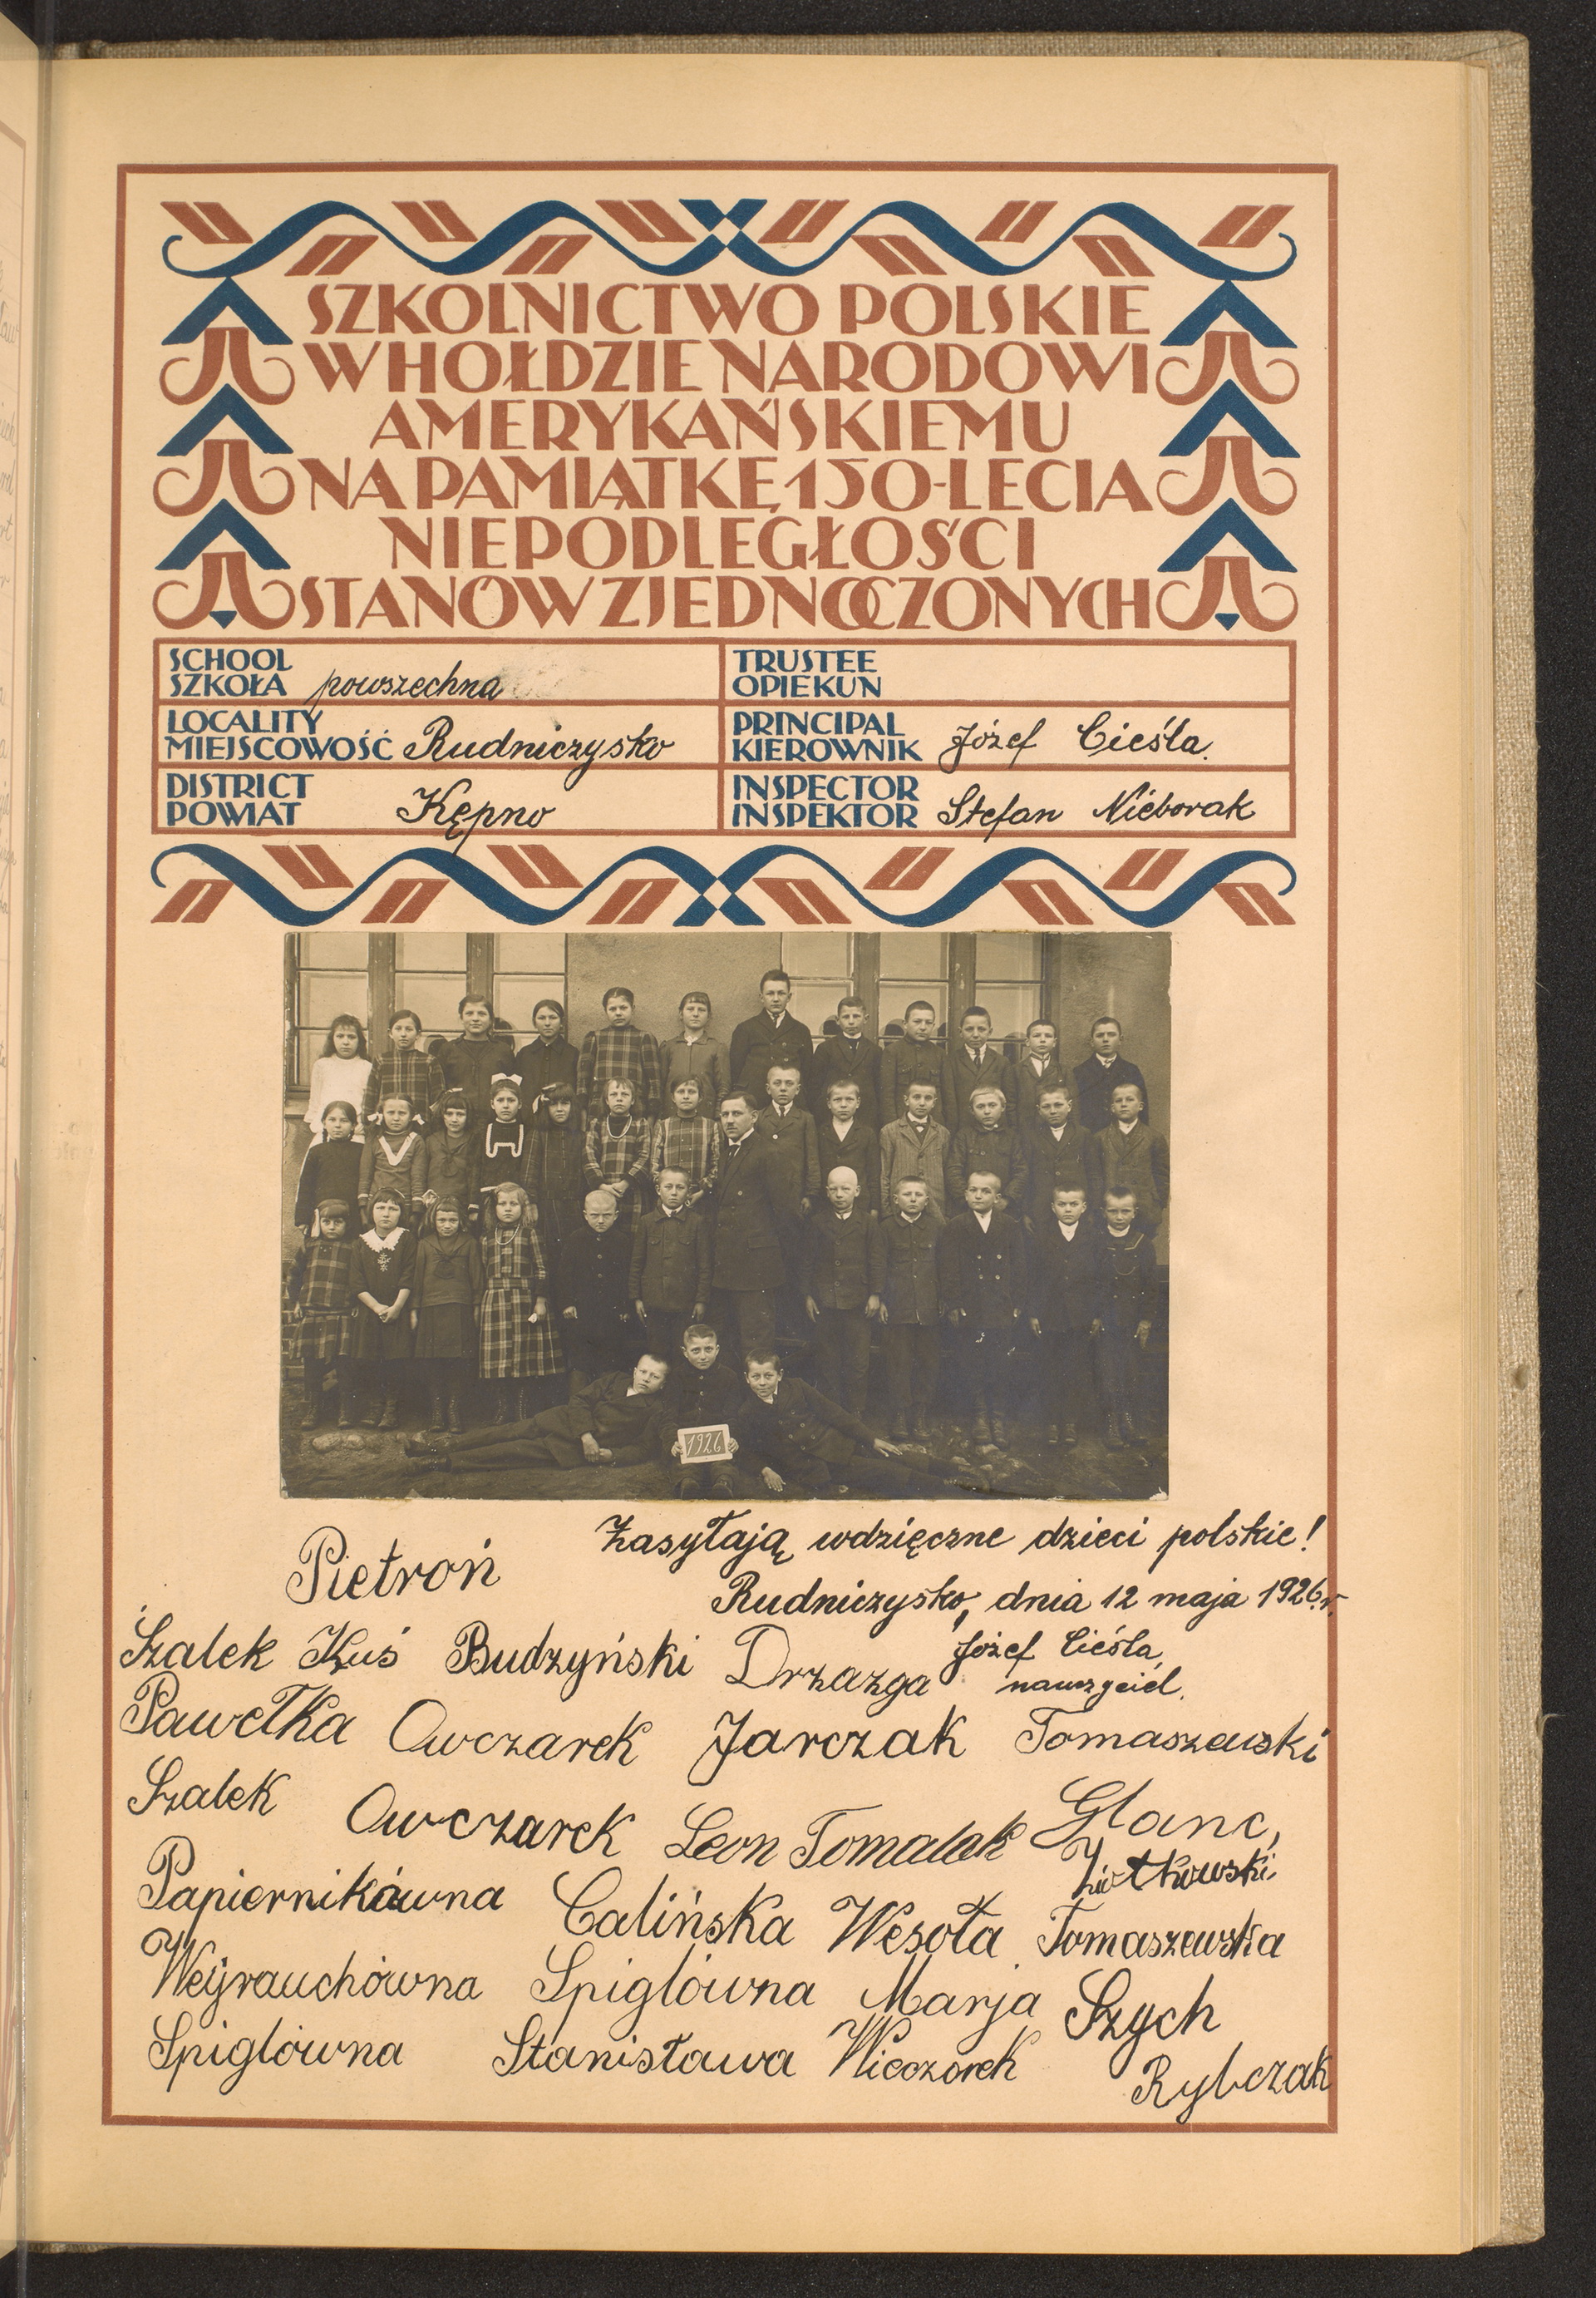 SZKOLNICTWO POLSKIE
W HOŁDZIE NARODOWI
AMERYKAŃSKIEMU
NA PAMIĄTKĘ 150-LECIA
NIEPODLEGŁOŚCI
STANÓW ZJEDNOCZONYCH
SCHOOL
SZKOŁA powszechna
TRUSTEE
OPIEKUN
LOCALITY
MIEJSCOWOŚĆ Rudniczysko
PRINCIPAL
KIEROWNIK Józef Cieśla.
DISTRICT
POWIAT Kępno
INSPECTOR
INSPEKTOR Stefan Nieborak
1926
Zasyłają wdzięczne dzieci polskie!
Pietroń
Rudniczysko, dnia 12 maja 1926 r.
Szalek Kuś Budzyński Drzazga Józef Cieśla,
nauczyciel.
Pawełka Owczarek Jarczak Tomaszewski
Szalek Owczarek Leon Tomalak Glanc,
Papiernikówna Calińska Wesoła Tomaszewska
Weÿrauchówna Spiglówna Marja Szych
Spiglówna Stanisława Wieczorek Rybczak